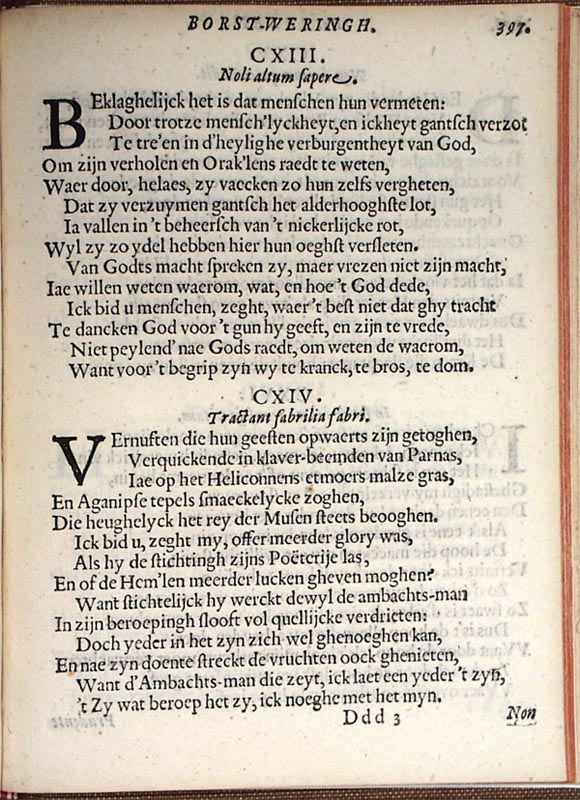 BORST-WERINGH. 397.
CXIII.
Noli altum sapere.
BEklaghelijck het is dat menſchen hun vermeten:
Door trotze menſch'lyckheyt, en ickheyt gantſch verzot
Te tre'en in d'heylighe verburgentheyt van God,
Om zijn verholen en Orak'lens raedt te weten,
Waer door, helaes, zy vaecken zo hun zelfs vergheten,
Dat zy verzuymen gantſch het alderhooghſte lot,
Ia vallen in 't beheerſch van 't nickerlijcke rot,
Wyl zy zo ydel hebben hier hun oeghſt verſleten.
Van Godts macht ſpreken zy, maer vrezen niet zijn macht,
Iae willen weten waerom, wat, en hoe 't God dede,
Ick bid u menſchen, zeght, waer 't beſt niet dat ghy tracht
Te dancken God voor 't gun hy geeft, en zijn te vrede,
Niet peylend' nae Gods raedt, om weten de waerom,
Want voor 't begrip zyn wy te kranck, te bros, te dom.
CXIV.
Tractant fabrilia fabri.
VErnuften die hun geeſten opwaerts zijn getoghen,
Verquickende in klaver-beemden van Parnas,
Iae op het Heliconnens etmoers malze gras,
En Aganipſe tepels ſmaeckelycke zoghen,
Die heughelyck het rey der Muſen ſteets beooghen.
Ick bid u, zeght my, offer meerder glory was,
Als hy de ſtichtingh zijns Poëterije las,
En of de Hem'len meerder lucken gheven moghen?
Want ſtichtelijck hy werckt dewyl de ambachts-man
In zijn beroepingh ſlooft vol quellijcke verdrieten:
Doch yeder in het zyn zich wel ghenoeghen kan,
En nae zyn doente ſtreckt de vruchten oock ghenieten,
Want d'Ambachts-man die zeyt, ick laet een yeder 't zyn,
't Zy wat beroep het zy, ick noeghe met het myn.
Ddd 3 Non